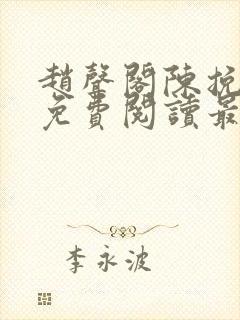 趙聲閣陳挽
免費閱讀最
李永波